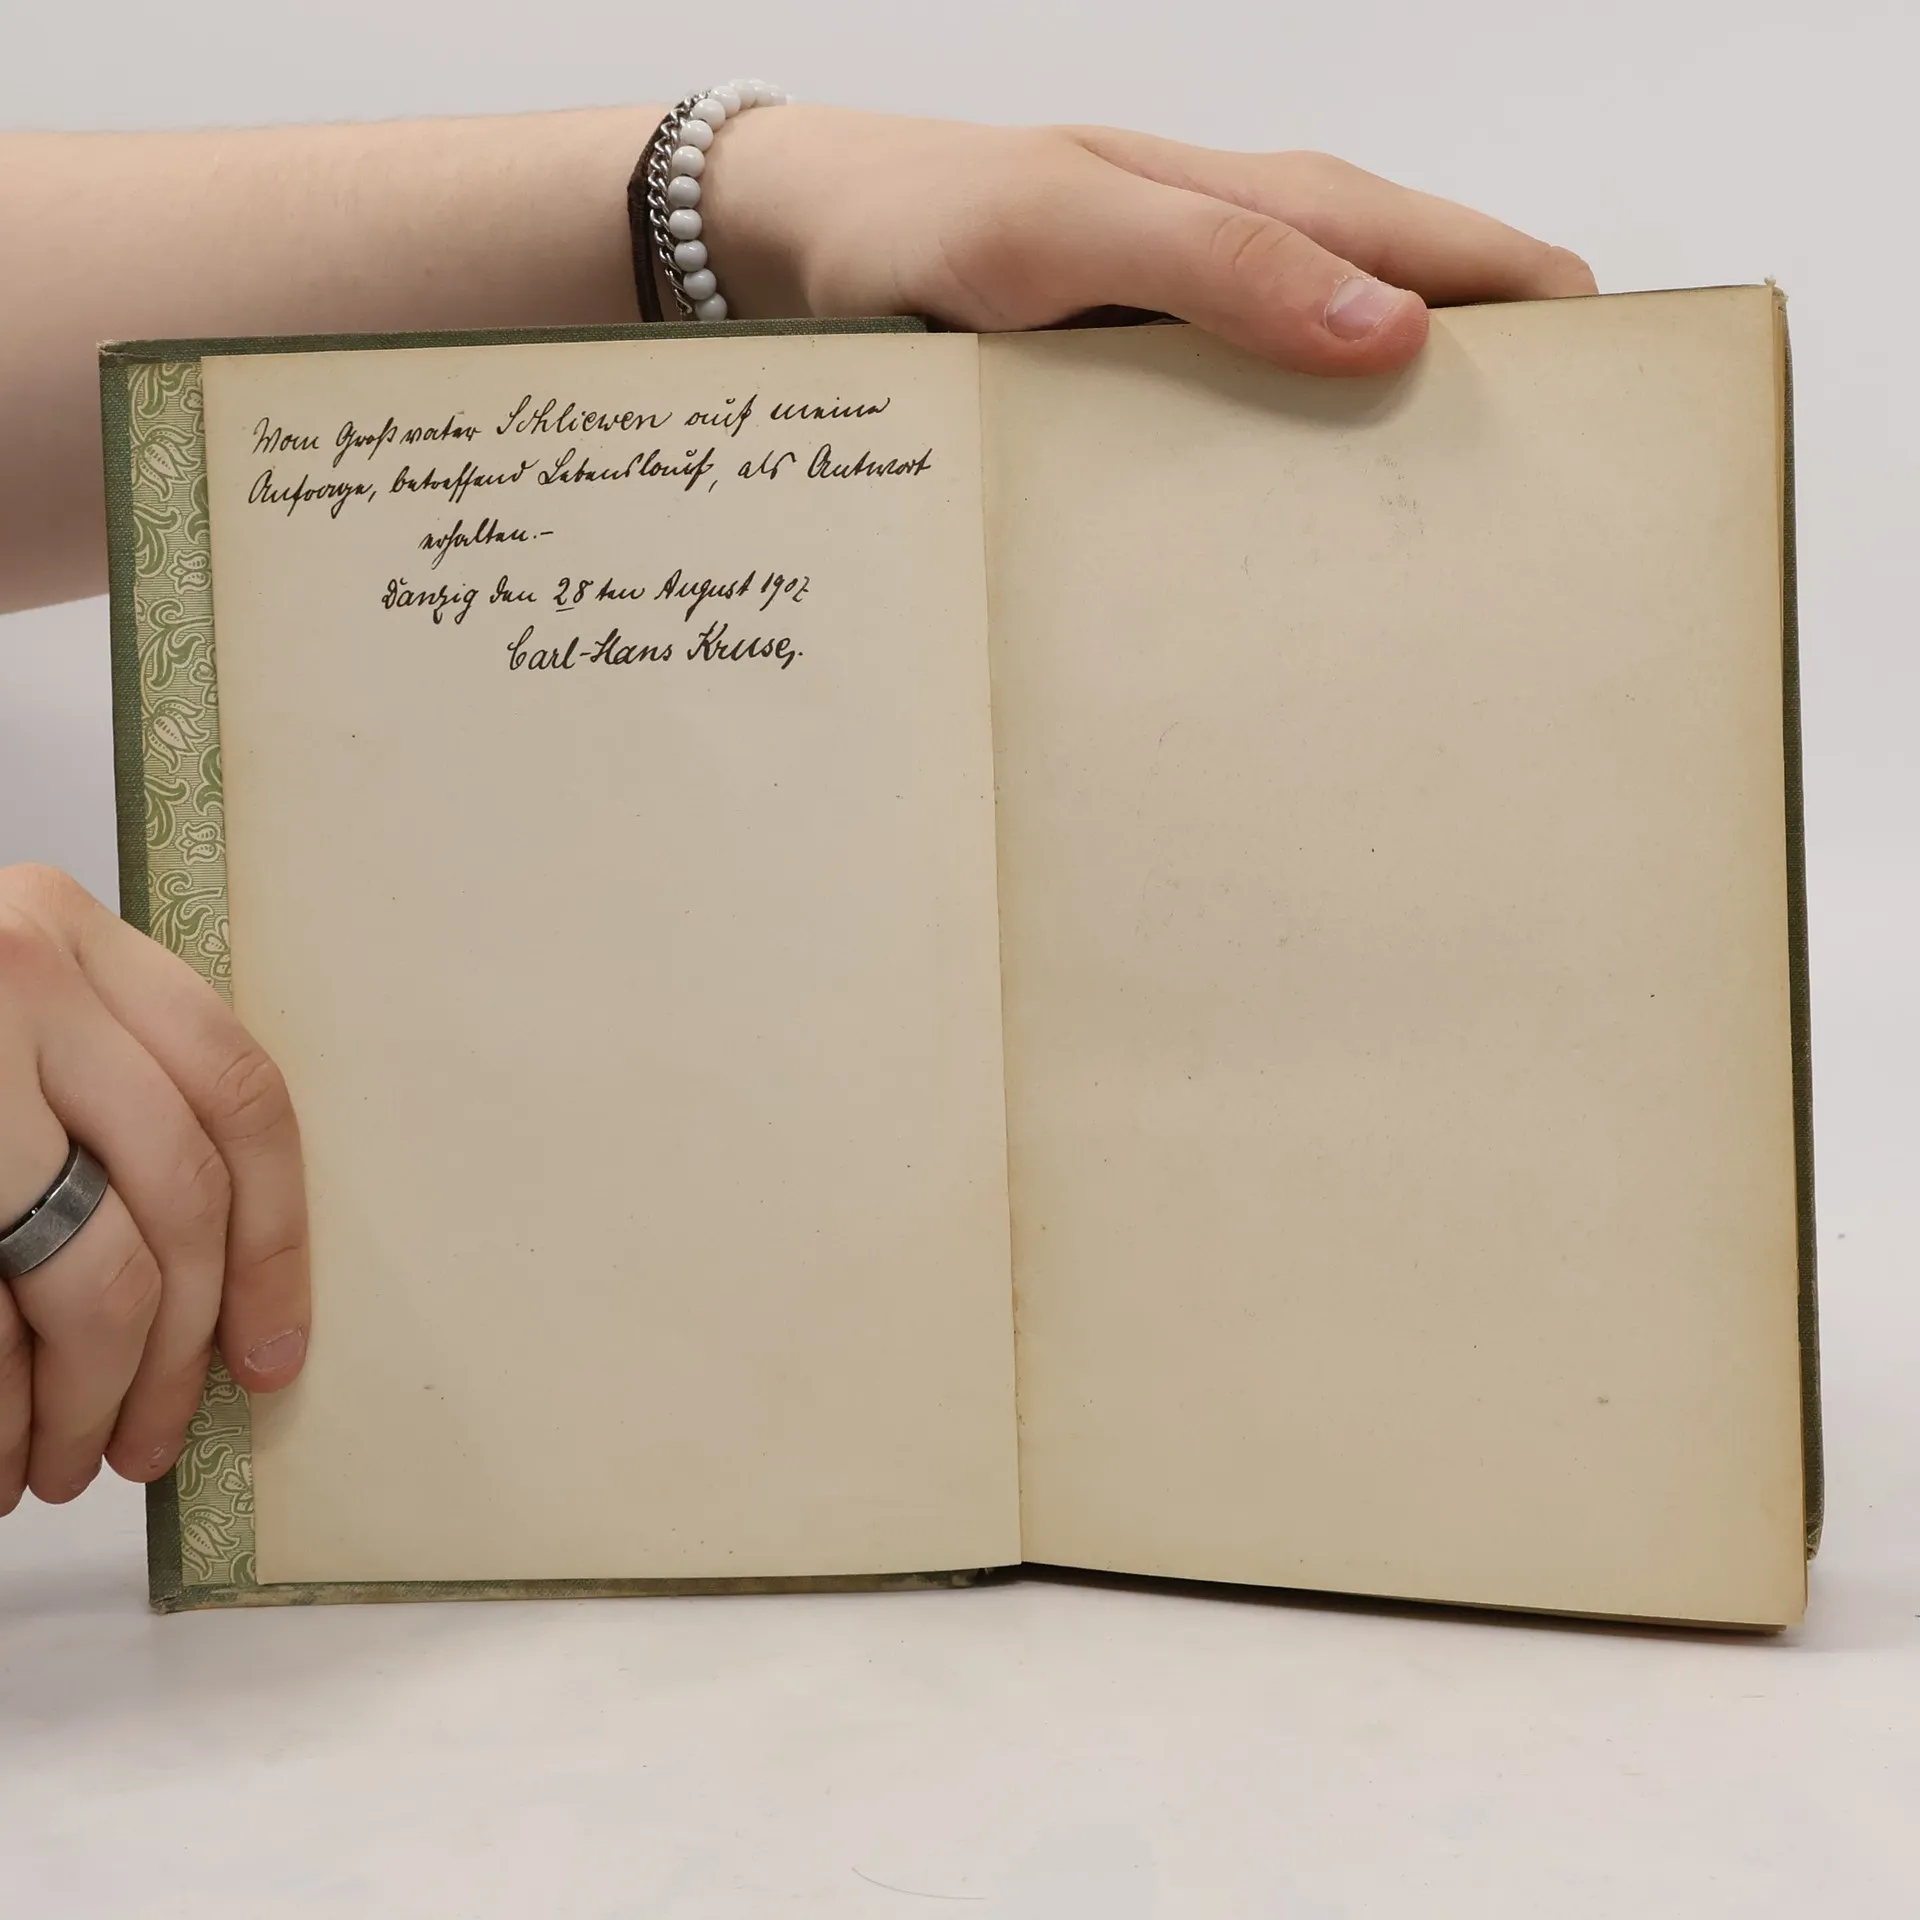 Vom Großvater Schliewen auf meine
Anfrage, betreffend Lebenslauf, als Antwort
erhalten.-
Danzig den 28ten August 1907
Carl-Hans Kruse.